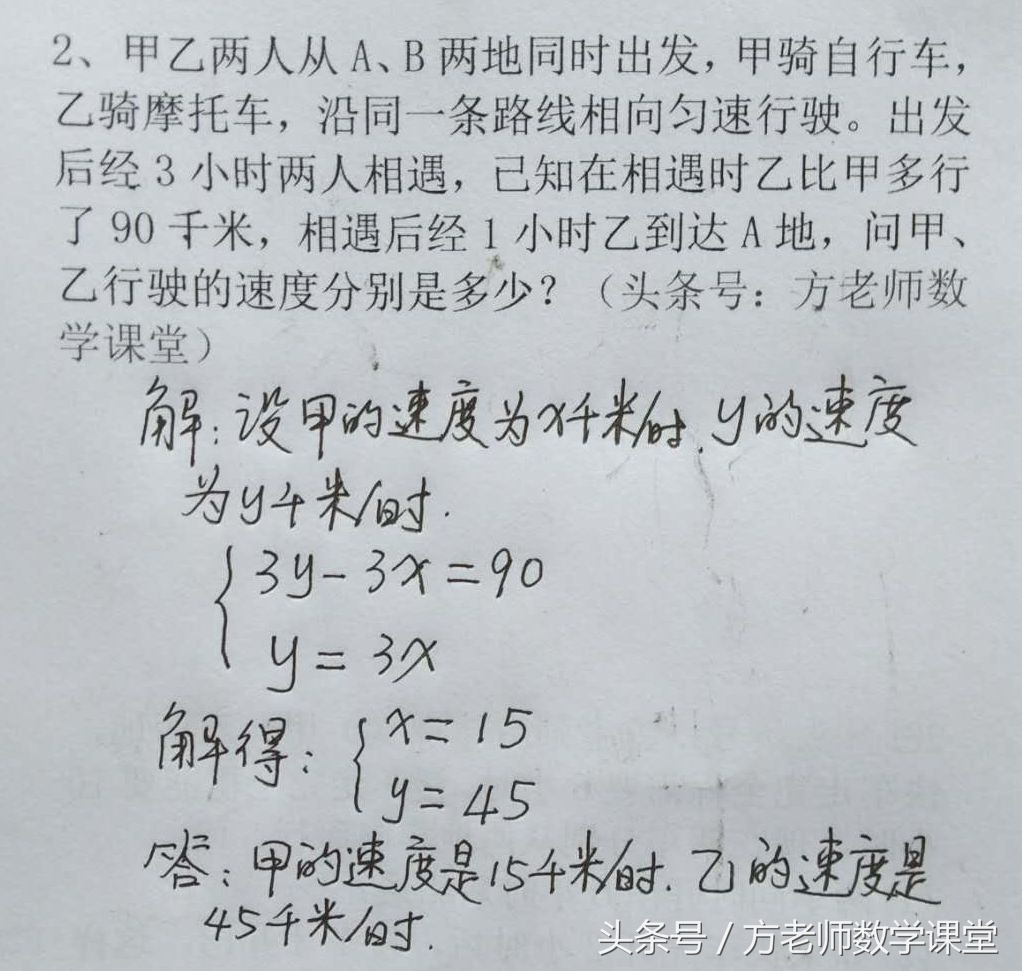 2、甲乙两人从A、B两地同时出发，甲骑自行车，
乙骑摩托车，沿同一条路线相向匀速行驶。出发
后经3小时两人相遇，已知在相遇时乙比甲多行
了90千米，相遇后经1小时乙到达A地，问甲、
乙行驶的速度分别是多少？（头条号：方老师数
学课堂）
解：设甲的速度为x千米/时.y的速度
为y千米/时.
3y-3x=90
y=3x
解得：x=15
y=45
答：甲的速度是15千米/时.乙的速度是
45千米/时.
头条号/方老师数学课堂